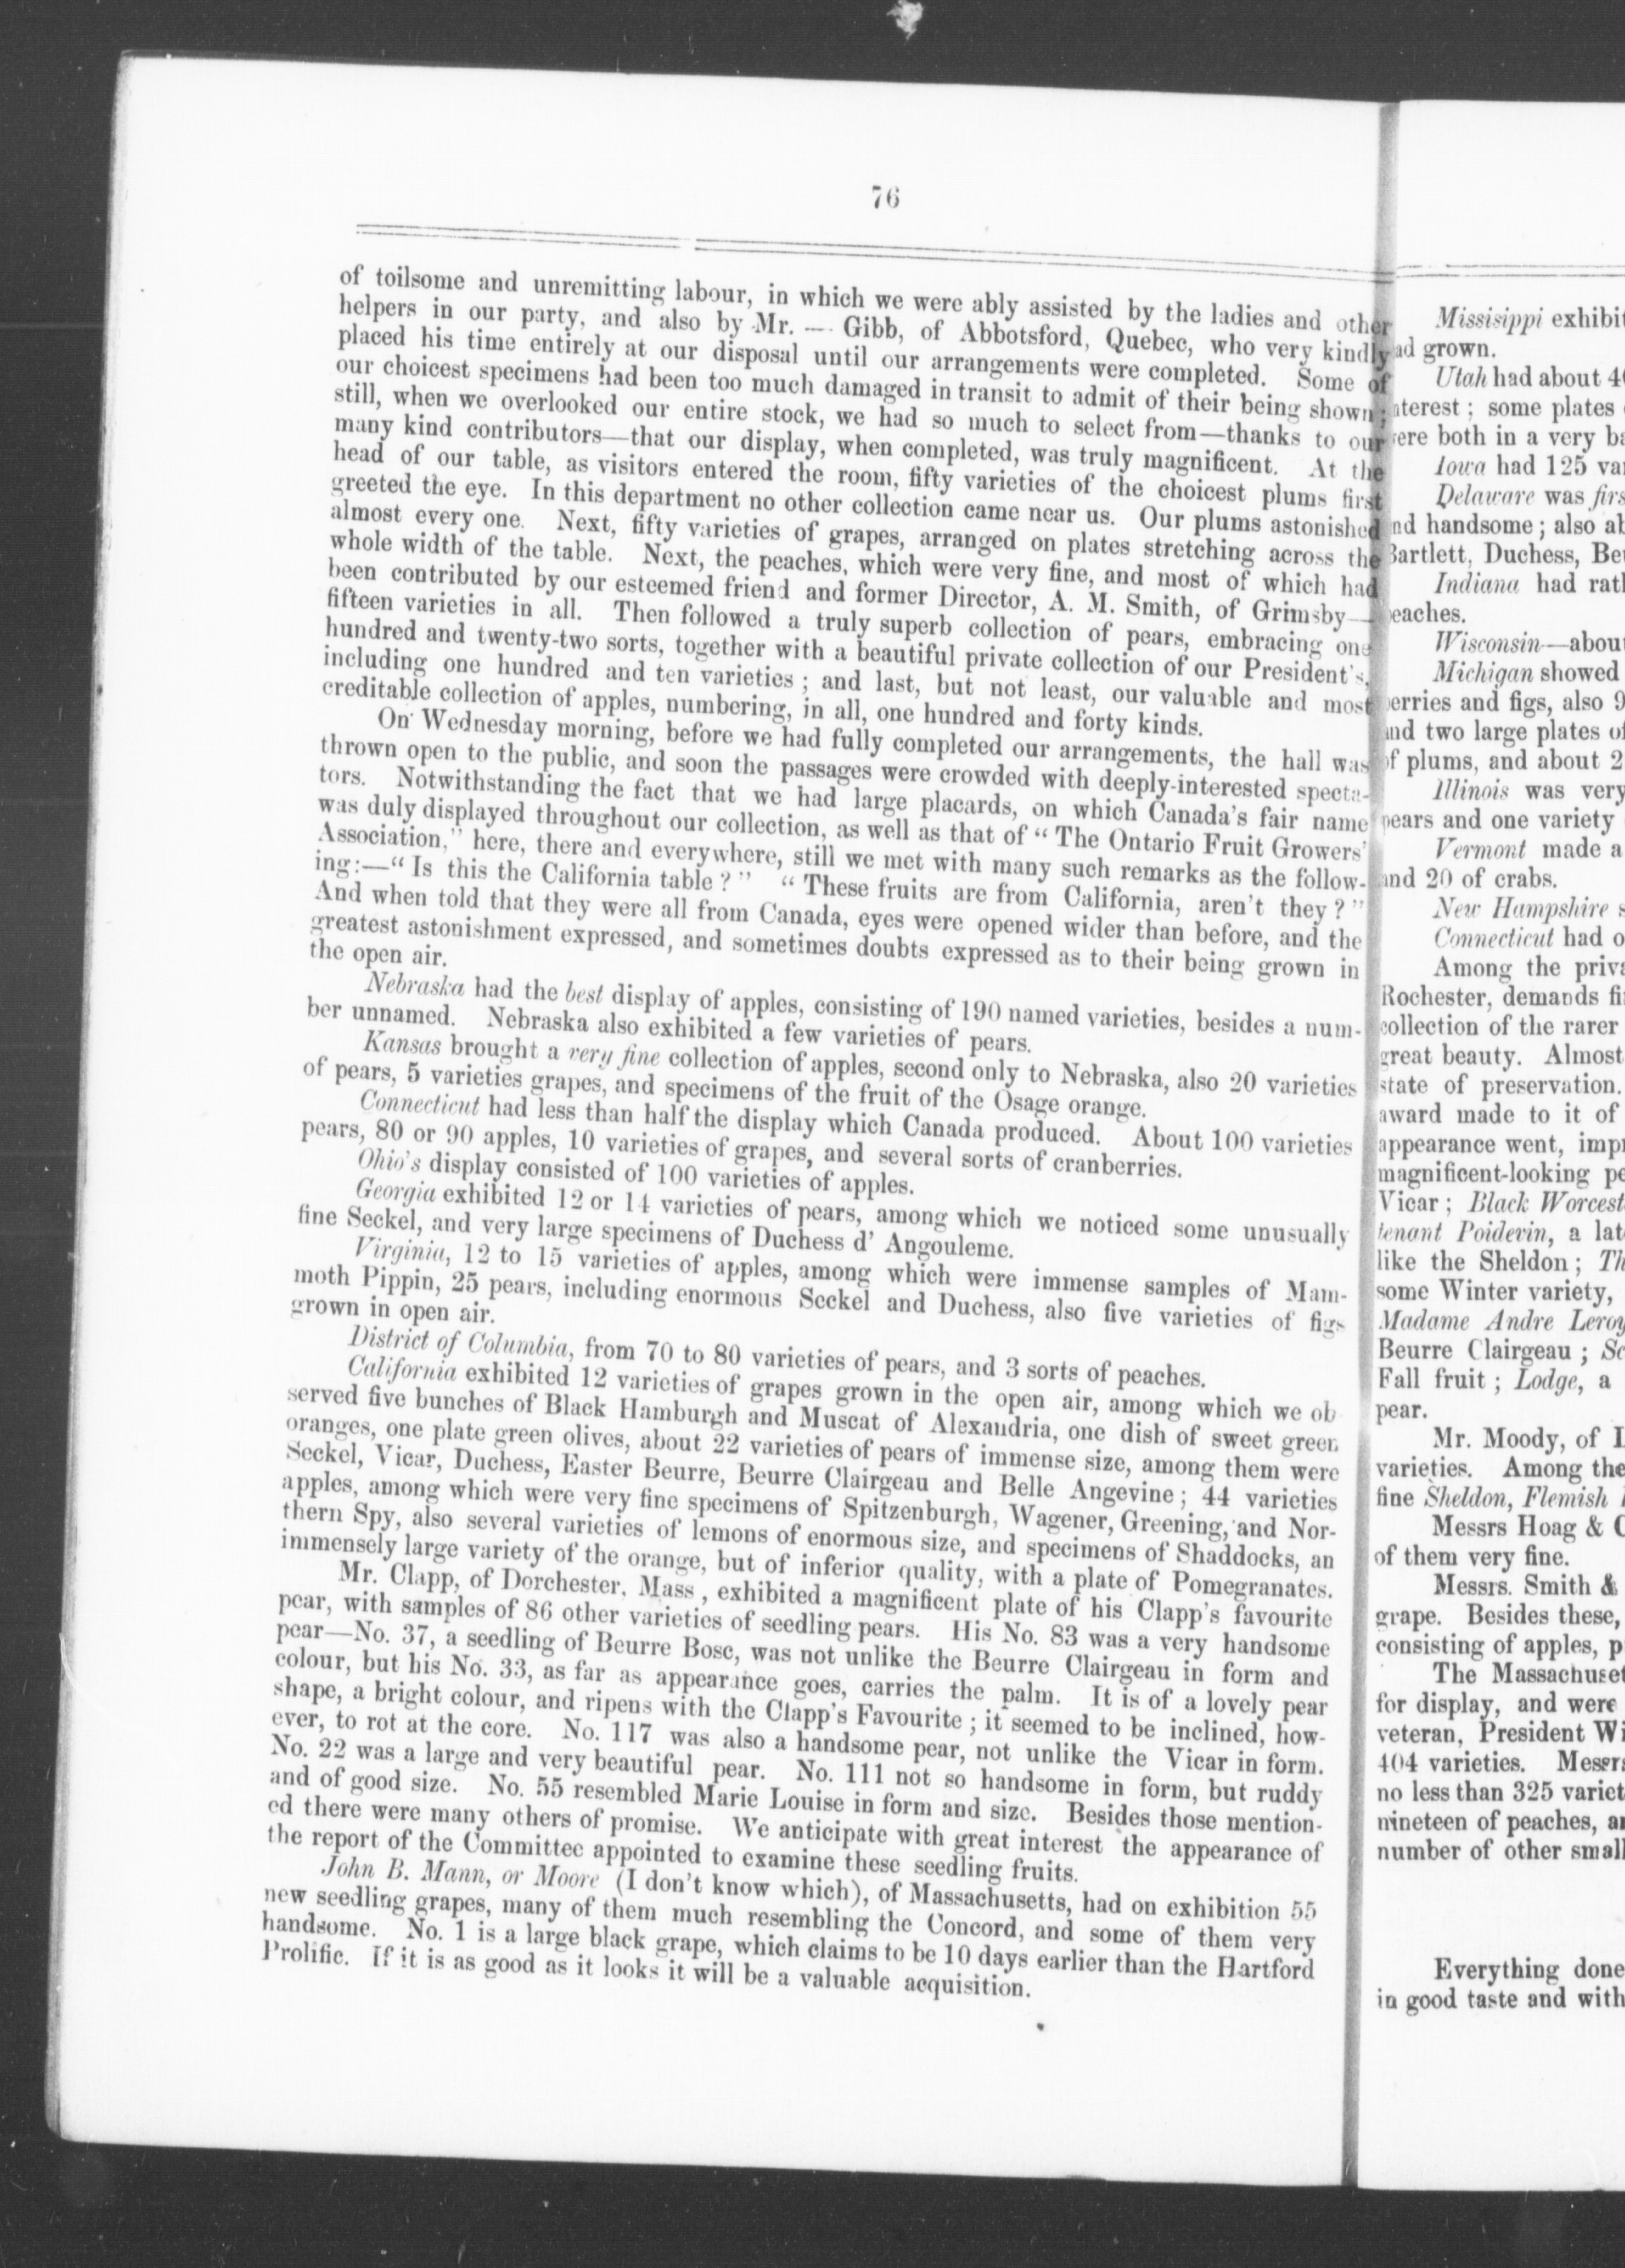 76
of toilsome and unremitting labour, in which we were ably assisted by the ladies and other
helpers in our party, and also by Mr. — Gibb, of Abbotsford, Quebec, who very kindly
placed his time entirely at our disposal until our arrangements were completed. Some of
our choicest specimens had been too much damaged in transit to admit of their being shown;
still, when we overlooked our entire stock, we had so much to select from—thanks to our
many kind contributors—that our display, when completed, was truly magnificent. At the
head of our table, as visitors entered the room, fifty varieties of the choicest plums first
greeted the eye. In this department no other collection came near us. Our plums astonished
almost every one. Next, fifty varieties of grapes, arranged on plates stretching across the
whole width of the table. Next, the peaches, which were very fine, and most of which had
been contributed by our esteemed friend and former Director, A. M. Smith, of Grimsby—
fifteen varieties in all. Then followed a truly superb collection of pears, embracing one
hundred and twenty-two sorts, together with a beautiful private collection of our President's,
including one hundred and ten varieties; and last, but not least, our valuable and most
creditable collection of apples, numbering, in all, one hundred and forty kinds.
On Wednesday morning, before we had fully completed our arrangements, the hall was
thrown open to the public, and soon the passages were crowded with deeply-interested specta-
tors. Notwithstanding the fact that we had large placards, on which Canada's fair name
was duly displayed throughout our collection, as well as that of "The Ontario Fruit Growers'
Association," here, there and everywhere, still we met with many such remarks as the follow-
ing:—"Is this the California table?" "These fruits are from California, aren't they?"
And when told that they were all from Canada, eyes were opened wider than before, and the
greatest astonishment expressed, and sometimes doubts expressed as to their being grown in
the open air.
Nebraska had the best display of apples, consisting of 190 named varieties, besides a num-
ber unnamed. Nebraska also exhibited a few varieties of pears.
Kansas brought a very fine collection of apples, second only to Nebraska, also 20 varieties
of pears, 5 varieties grapes, and specimens of the fruit of the Osage orange.
Connecticut had less than half the display which Canada produced. About 100 varieties
pears, 80 or 90 apples, 10 varieties of grapes, and several sorts of cranberries.
Ohio's display consisted of 100 varieties of apples.
Georgia exhibited 12 or 14 varieties of pears, among which we noticed some unusually
fine Seckel, and very large specimens of Duchess d' Angouleme.
Virginia, 12 to 15 varieties of apples, among which were immense samples of Mam-
moth Pippin, 25 pears, including enormous Seckel and Duchess, also five varieties of figs
grown in open air.
District of Columbia, from 70 to 80 varieties of pears, and 3 sorts of peaches.
California exhibited 12 varieties of grapes grown in the open air, among which we ob
served five bunches of Black Hamburgh and Muscat of Alexandria, one dish of sweet green
oranges, one plate green olives, about 22 varieties of pears of immense size, among them were
Seckel, Vicar, Duchess, Easter Beurre, Beurre Clairgeau and Belle Angevine; 44 varieties
apples, among which were very fine specimens of Spitzenburgh, Wagener, Greening, and Nor-
thern Spy, also several varieties of lemons of enormous size, and specimens of Shaddocks, an
immensely large variety of the orange, but of inferior quality, with a plate of Pomegranates.
Mr. Clapp, of Dorchester, Mass, exhibited a magnificent plate of his Clapp's favourite
pear, with samples of 86 other varieties of seedling pears. His No. 83 was a very handsome
pear—No. 37, a seedling of Beurre Bosc, was not unlike the Beurre Clairgeau in form and
colour, but his No. 33, as far as appearance goes, carries the palm. It is of a lovely pear
shape, a bright colour, and ripens with the Clapp's Favourite; it seemed to be inclined, how-
ever, to rot at the core. No. 117 was also a handsome pear, not unlike the Vicar in form.
No. 22 was a large and very beautiful pear. No. 111 not so handsome in form, but ruddy
and of good size. No. 55 resembled Marie Louise in form and size. Besides those mention-
ed there were many others of promise. We anticipate with great interest the appearance of
the report of the Committee appointed to examine these seedling fruits.
John B. Mann, or Moore (I don't know which), of Massachusetts, had on exhibition 55
new seedling grapes, many of them much resembling the Concord, and some of them very
handsome. No. 1 is a large black grape, which claims to be 10 days earlier than the Hartford
Prolific. If it is as good as it looks it will be a valuable acquisition.
Missisippi exhibit
ad grown.
Utah had about 4
terest; some plates
ere both in a very
Iowa had 125 va
Delaware was firs
nd handsome; also
Bartlett, Duchess, Be
Indiana had rat
eaches.
Wisconsin—abou
Michigan showed
erries and figs, also 9
and two large plates of
of plums, and about 2
Illinois was very
pears and one variety
Vermont made a
and 20 of crabs.
New Hampshire
Connecticut had
Among the priv
Rochester, demands
collection of the rarer
great beauty. Almost
state of preservation.
award made to it of
appearance went, imp
magnificent-looking pe
Vicar; Black Worcest
tenant Poidevin, a lat
like the Sheldon; Th
some Winter variety,
Madame Andre Leroy
Beurre Clairgeau; Sc
Fall fruit; Lodge, a
pear.
Mr. Moody, of
varieties. Among the
fine Sheldon, Flemish
Messrs Hoag &
of them very fine.
Messrs. Smith &
grape. Besides these,
consisting of apples, p
The Massachuset
for display, and were
veteran, President Wi
404 varieties. Messrs
no less than 325 variet
nineteen of peaches, a
number of other small
Everything done
in good taste and with